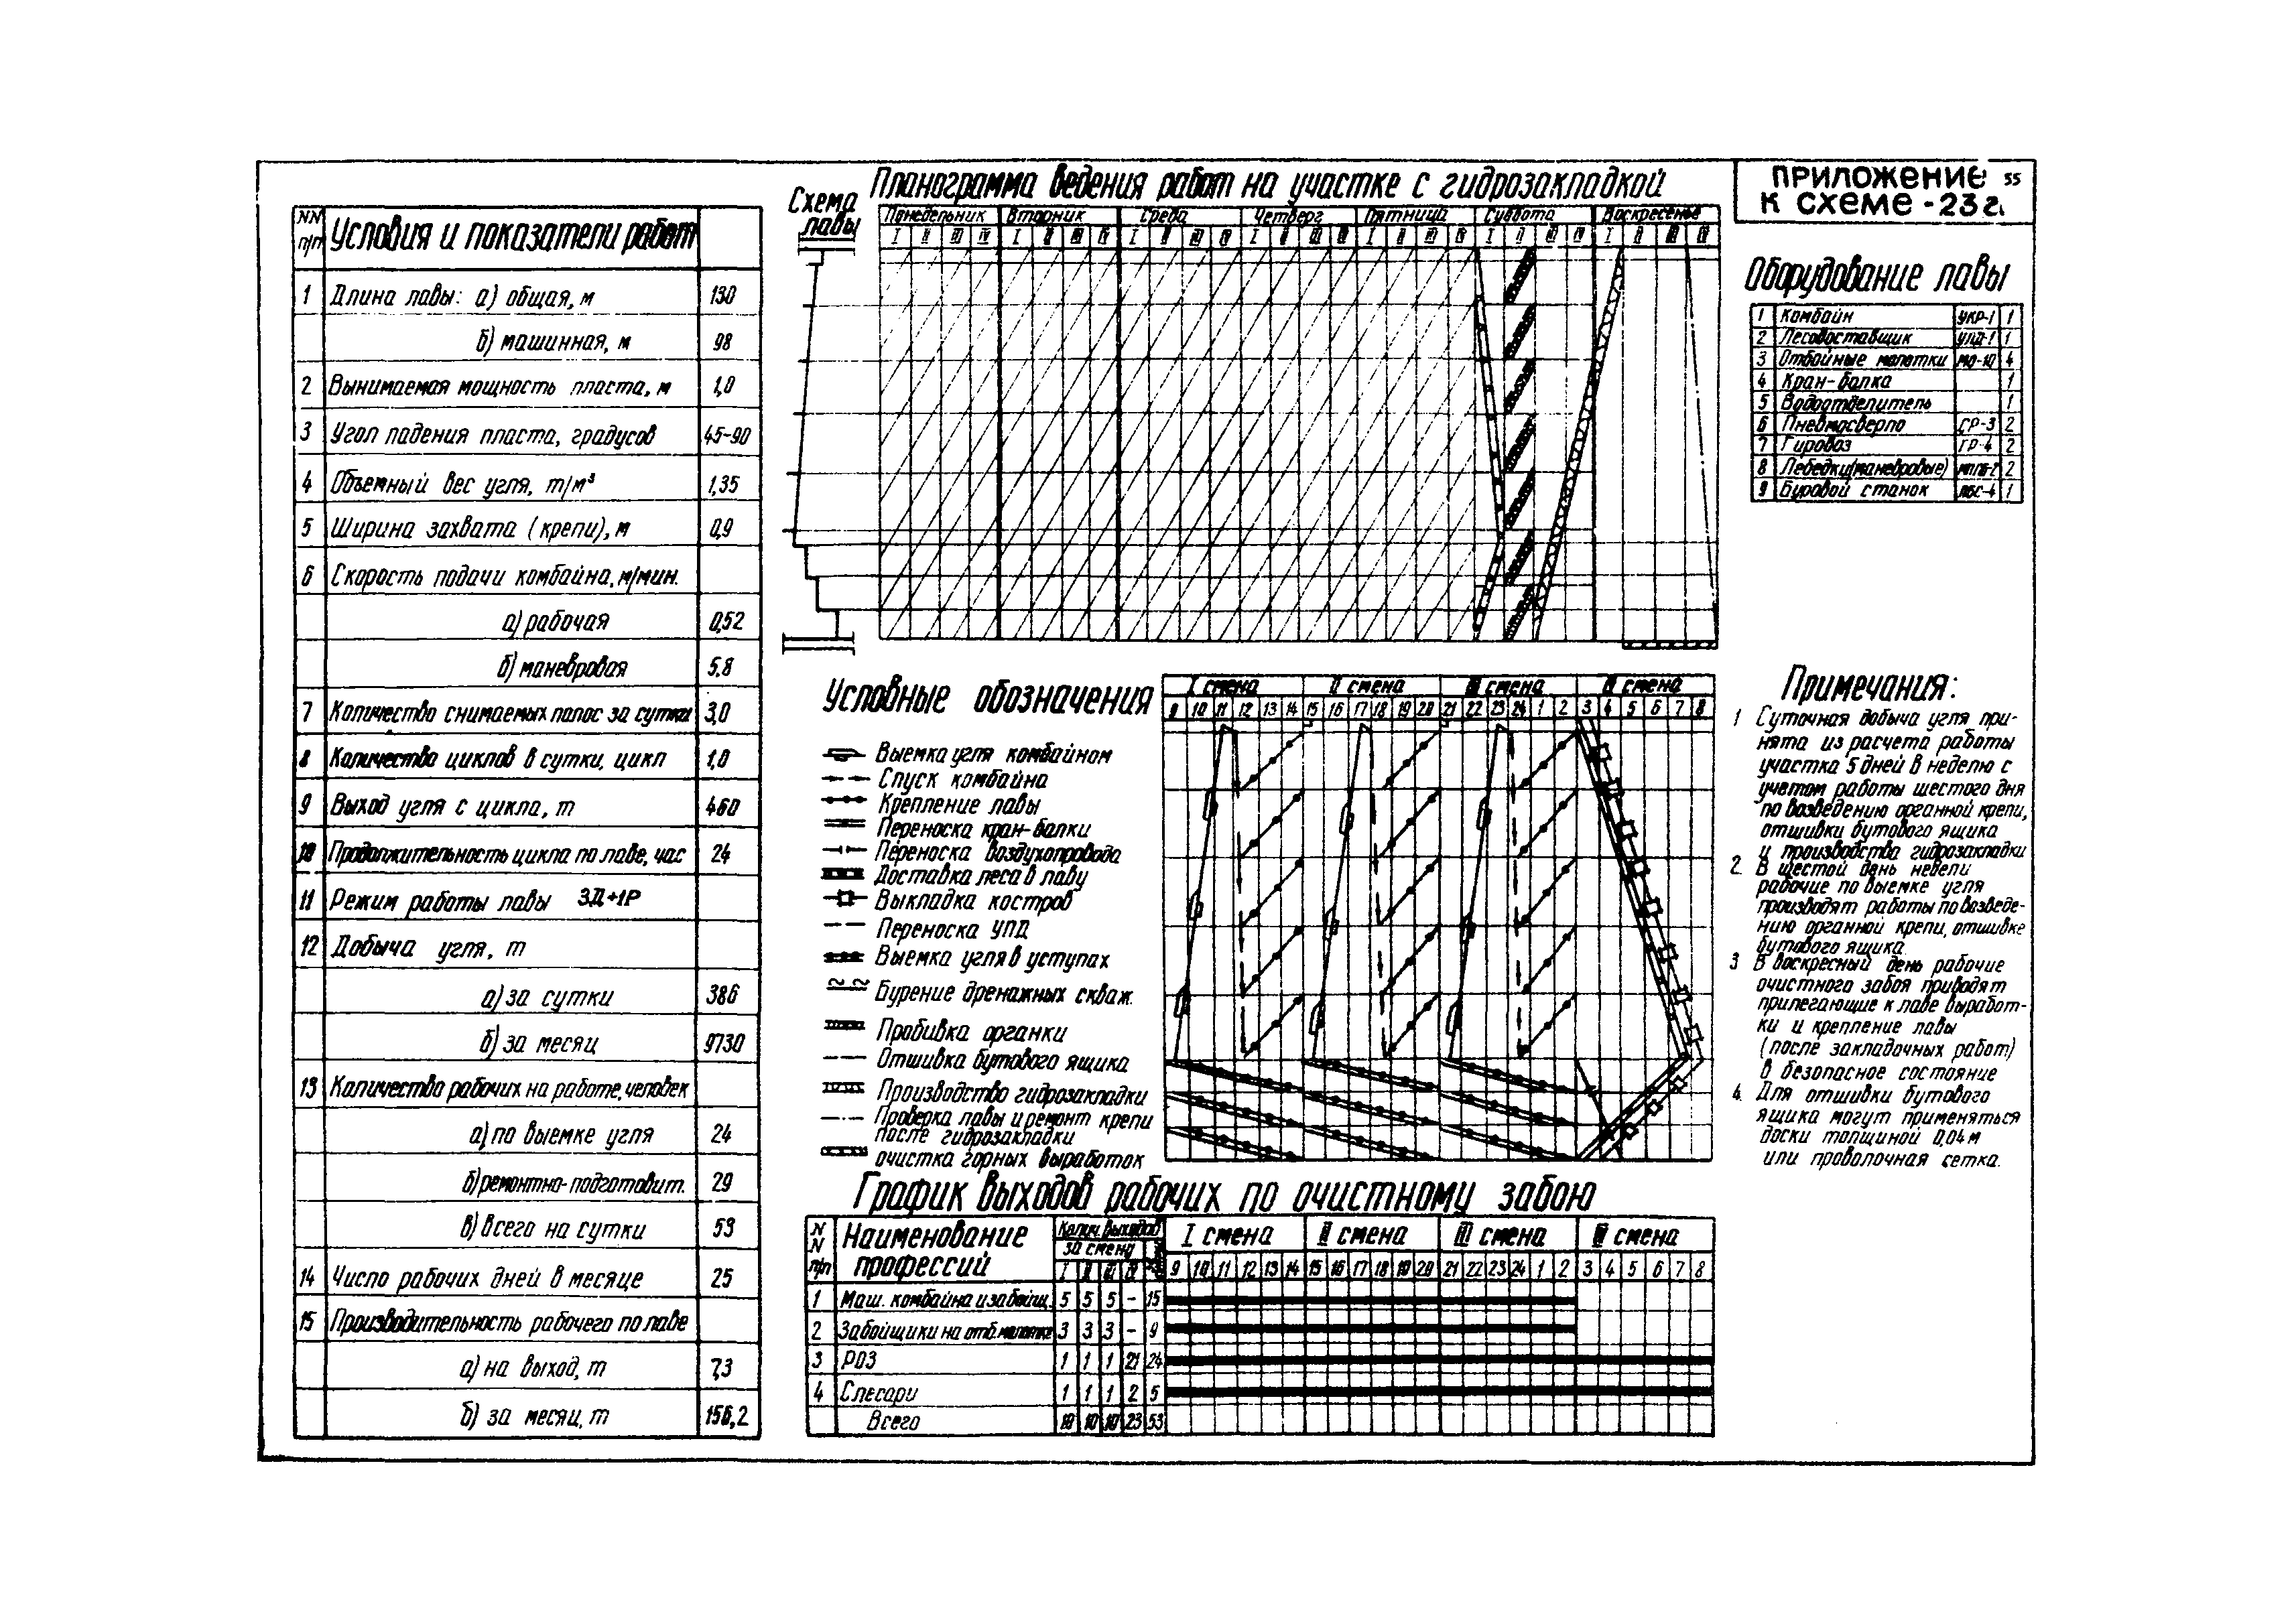 Приложение 55
к схеме - 23 г.
NN п/п Условия и показатели работ
1 Длина лавы: а) общая, м 130
б) машинная, м 98
2 Вынимаемая мощность пласта, м 1,0
3 Угол падения пласта, градусов 45-90
4 Объемный вес угля, т/м³ 1,35
5 Ширина захвата (крепи), м 0,9
6 Скорость подачи комбайна, м/мин.
а) рабочая 0,52
б) маневровая 5,8
7 Количество снимаемых полос за сутки 3,0
8 Количество циклов в сутки, цикл 1,0
9 Выход угля с цикла, т 460
10 Продолжительность цикла по лаве, час 24
11 Режим работы лавы 3Д+1Р
12 Добыча угля, т
а) за сутки 386
б) за месяц 9730
13 Количество рабочих на работе, человек
а) по выемке угля 24
б) ремонтно-подготовит. 29
в) всего на сутки 53
14 Число рабочих дней в месяце 25
15 Производительность рабочего по лаве
а) на выход, т 7,3
б) за месяц, т 156,2
Схема лавы
Планограмма ведения работ на участке с гидрозакладкой
Понедельник Вторник Среда Четверг Пятница Суббота Воскресенье
I II III IV I II III IV I II III IV I II III IV I II III IV I II III IV
Оборудование лавы
1 Комбайн УКР-1 1
2 Лесодоставщик УПД-1 1
3 Отбойные молотки МО-10 4
4 Кран-балка 1
5 Водоотделитель 1
6 Пневмосверло СР-3 2
7 Гировоз ГР-4 2
8 Лебедки (маневровые) 2
9 Буровой станок ЛБС-4 1
Условные обозначения
Выемка угля комбайном
Спуск комбайна
Крепление лавы
Переноска кран-балки
Переноска воздухопровода
Доставка леса в лаву
Выкладка костров
Переноска УПД
Выемка угля в уступах
Бурение дренажных скваж.
Пробивка органки
Отшивка бутового ящика
Производство гидрозакладки
Проверка лавы и ремонт крепи
после гидрозакладки
очистка горных выработок
I смена II смена III смена IV смена
9 10 11 12 13 14 15 16 17 18 19 20 21 22 23 24 1 2 3 4 5 6 7 8
Примечания:
1 Суточная добыча угля при-
нята из расчета работы
участка 5 дней в неделю с
учетом работы шестого дня
по возведению органной крепи,
отшивки бутового ящика
и производства гидрозакладки
2. В шестой день недели
рабочие по выемке угля
производят работы по возведе-
нию органной крепи, отшивке
бутового ящика.
3 В воскресный день рабочие
очистного забоя приводят
прилегающие к лаве выработ-
ки и крепление лавы
(после закладочных работ)
в безопасное состояние
4. Для отшивки бутового
ящика могут применяться
доски толщиной 0,04 м
или проволочная сетка.
График выходов рабочих по очистному забою
N N п/п Наименование профессий Колич. выходов за смену I II III IV
I смена II смена III смена IV смена
9 10 11 12 13 14 15 16 17 18 19 20 21 22 23 24 1 2 3 4 5 6 7 8
1 Маш. комбайна и забойщ. 5 5 5 - 15
2 Забойщики на отб. молотке 3 3 3 - 9
3 РОЗ 1 1 1 21 24
4 Слесари 1 1 1 2 5
Всего 10 10 10 23 53